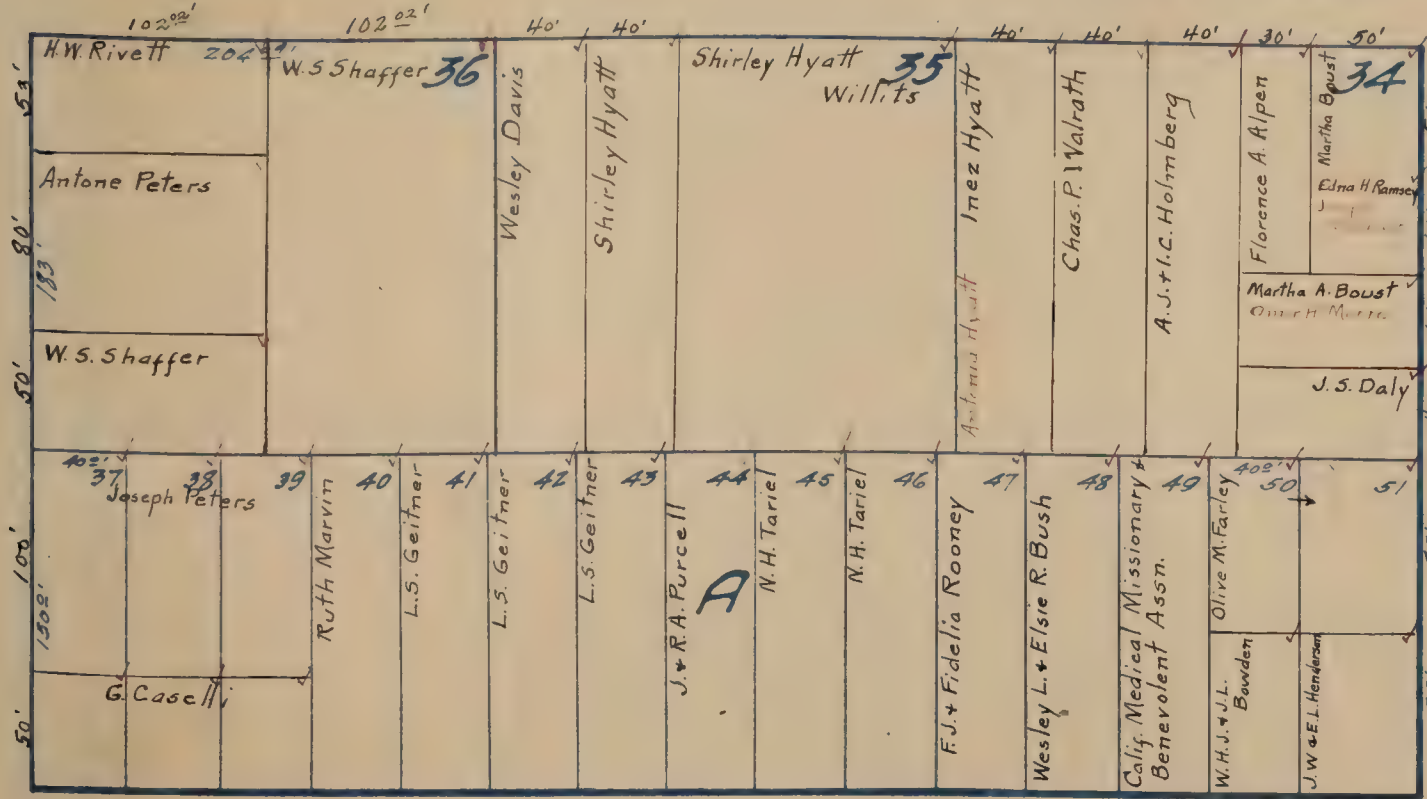 102 02'
102 02'
40'
40'
40'
40'
40'
30'
50'
H.W. Rivett
204
W. S Shaffer
36
Wesley Davis
Shirley Hyatt
Shirley Hyatt
Willits
35
Inez Hyatt
Antonia Hyatt
Chas. P. Valrath
A. J. + I. C. Holmberg
Florence A. Alpen
Martha Boust
34
Edna H Ramsey
53'
Antone Peters
80'
183'
Martha A. Boust
W. S. Shaffer
50'
J. S. Daly
40 02'
37
38
39
40
41
42
43
44
45
46
47
48
49
40 02'
50
51
Joseph Peters
Ruth Marvin
L. S. Geitner
L. S. Geitner
L. S. Geitner
J. + R. A. Purcell
A
N. H. Tariel
N. H. Tariel
F. J. + Fidelia Rooney
Wesley L. + Elsie R. Bush
Calif. Medical Missionary +
Benevolent Assn.
Olive M. Farley
100'
150 02'
G. Caselli
50'
W. H. J. + J. L.
Bowden
J. W & E. L. Henderson